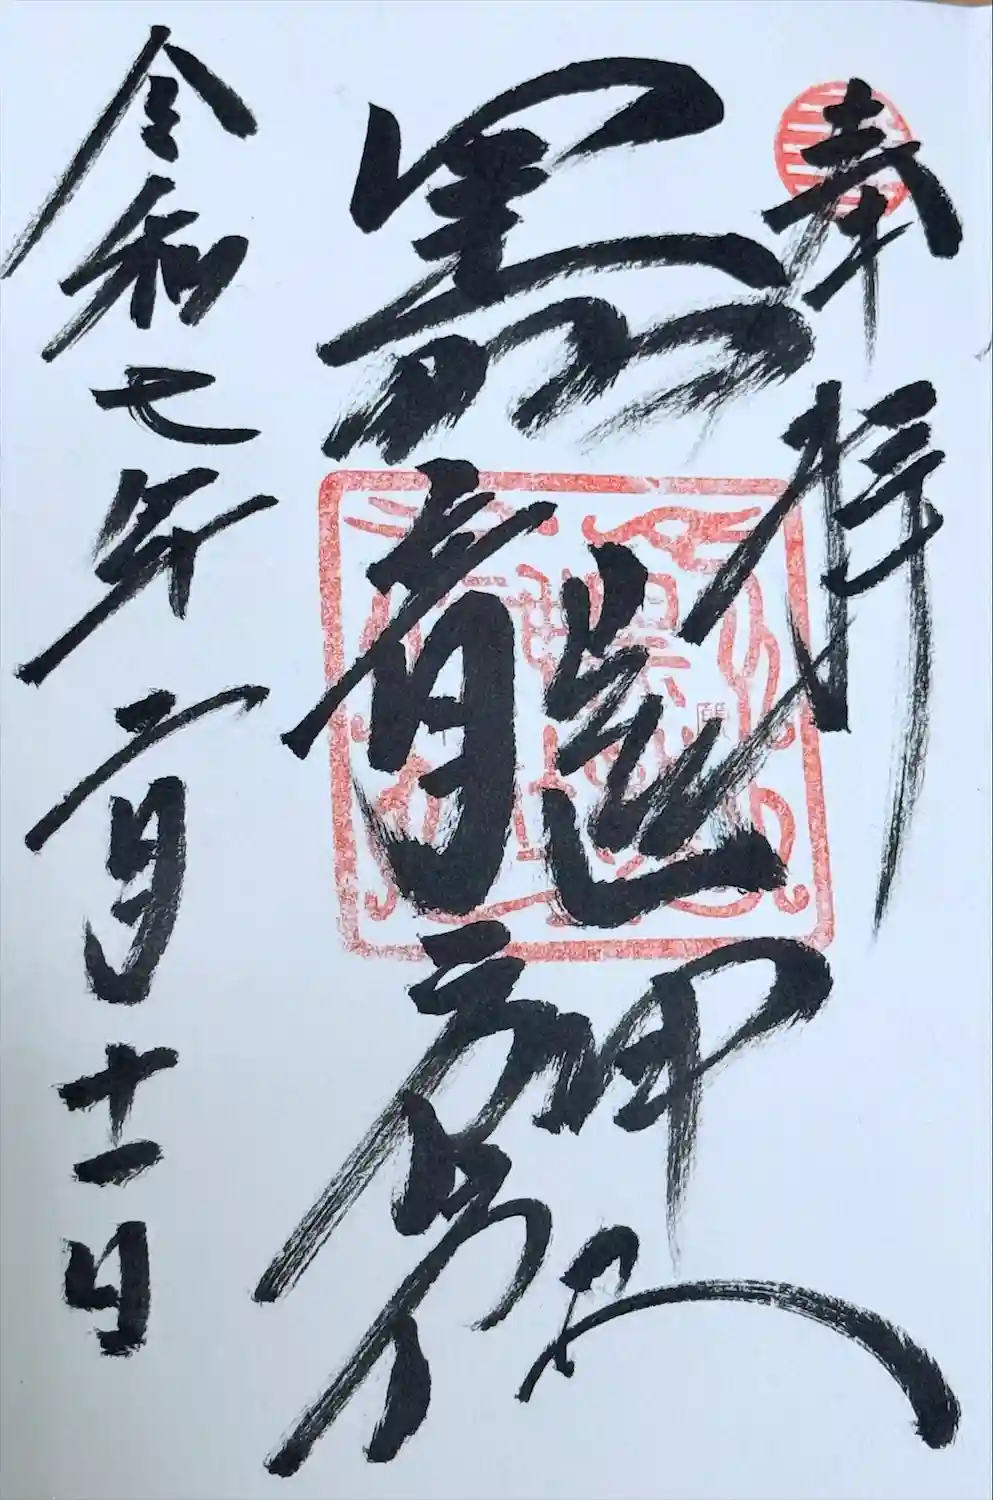 奉拝
黒龍神
令和七年二月十一日